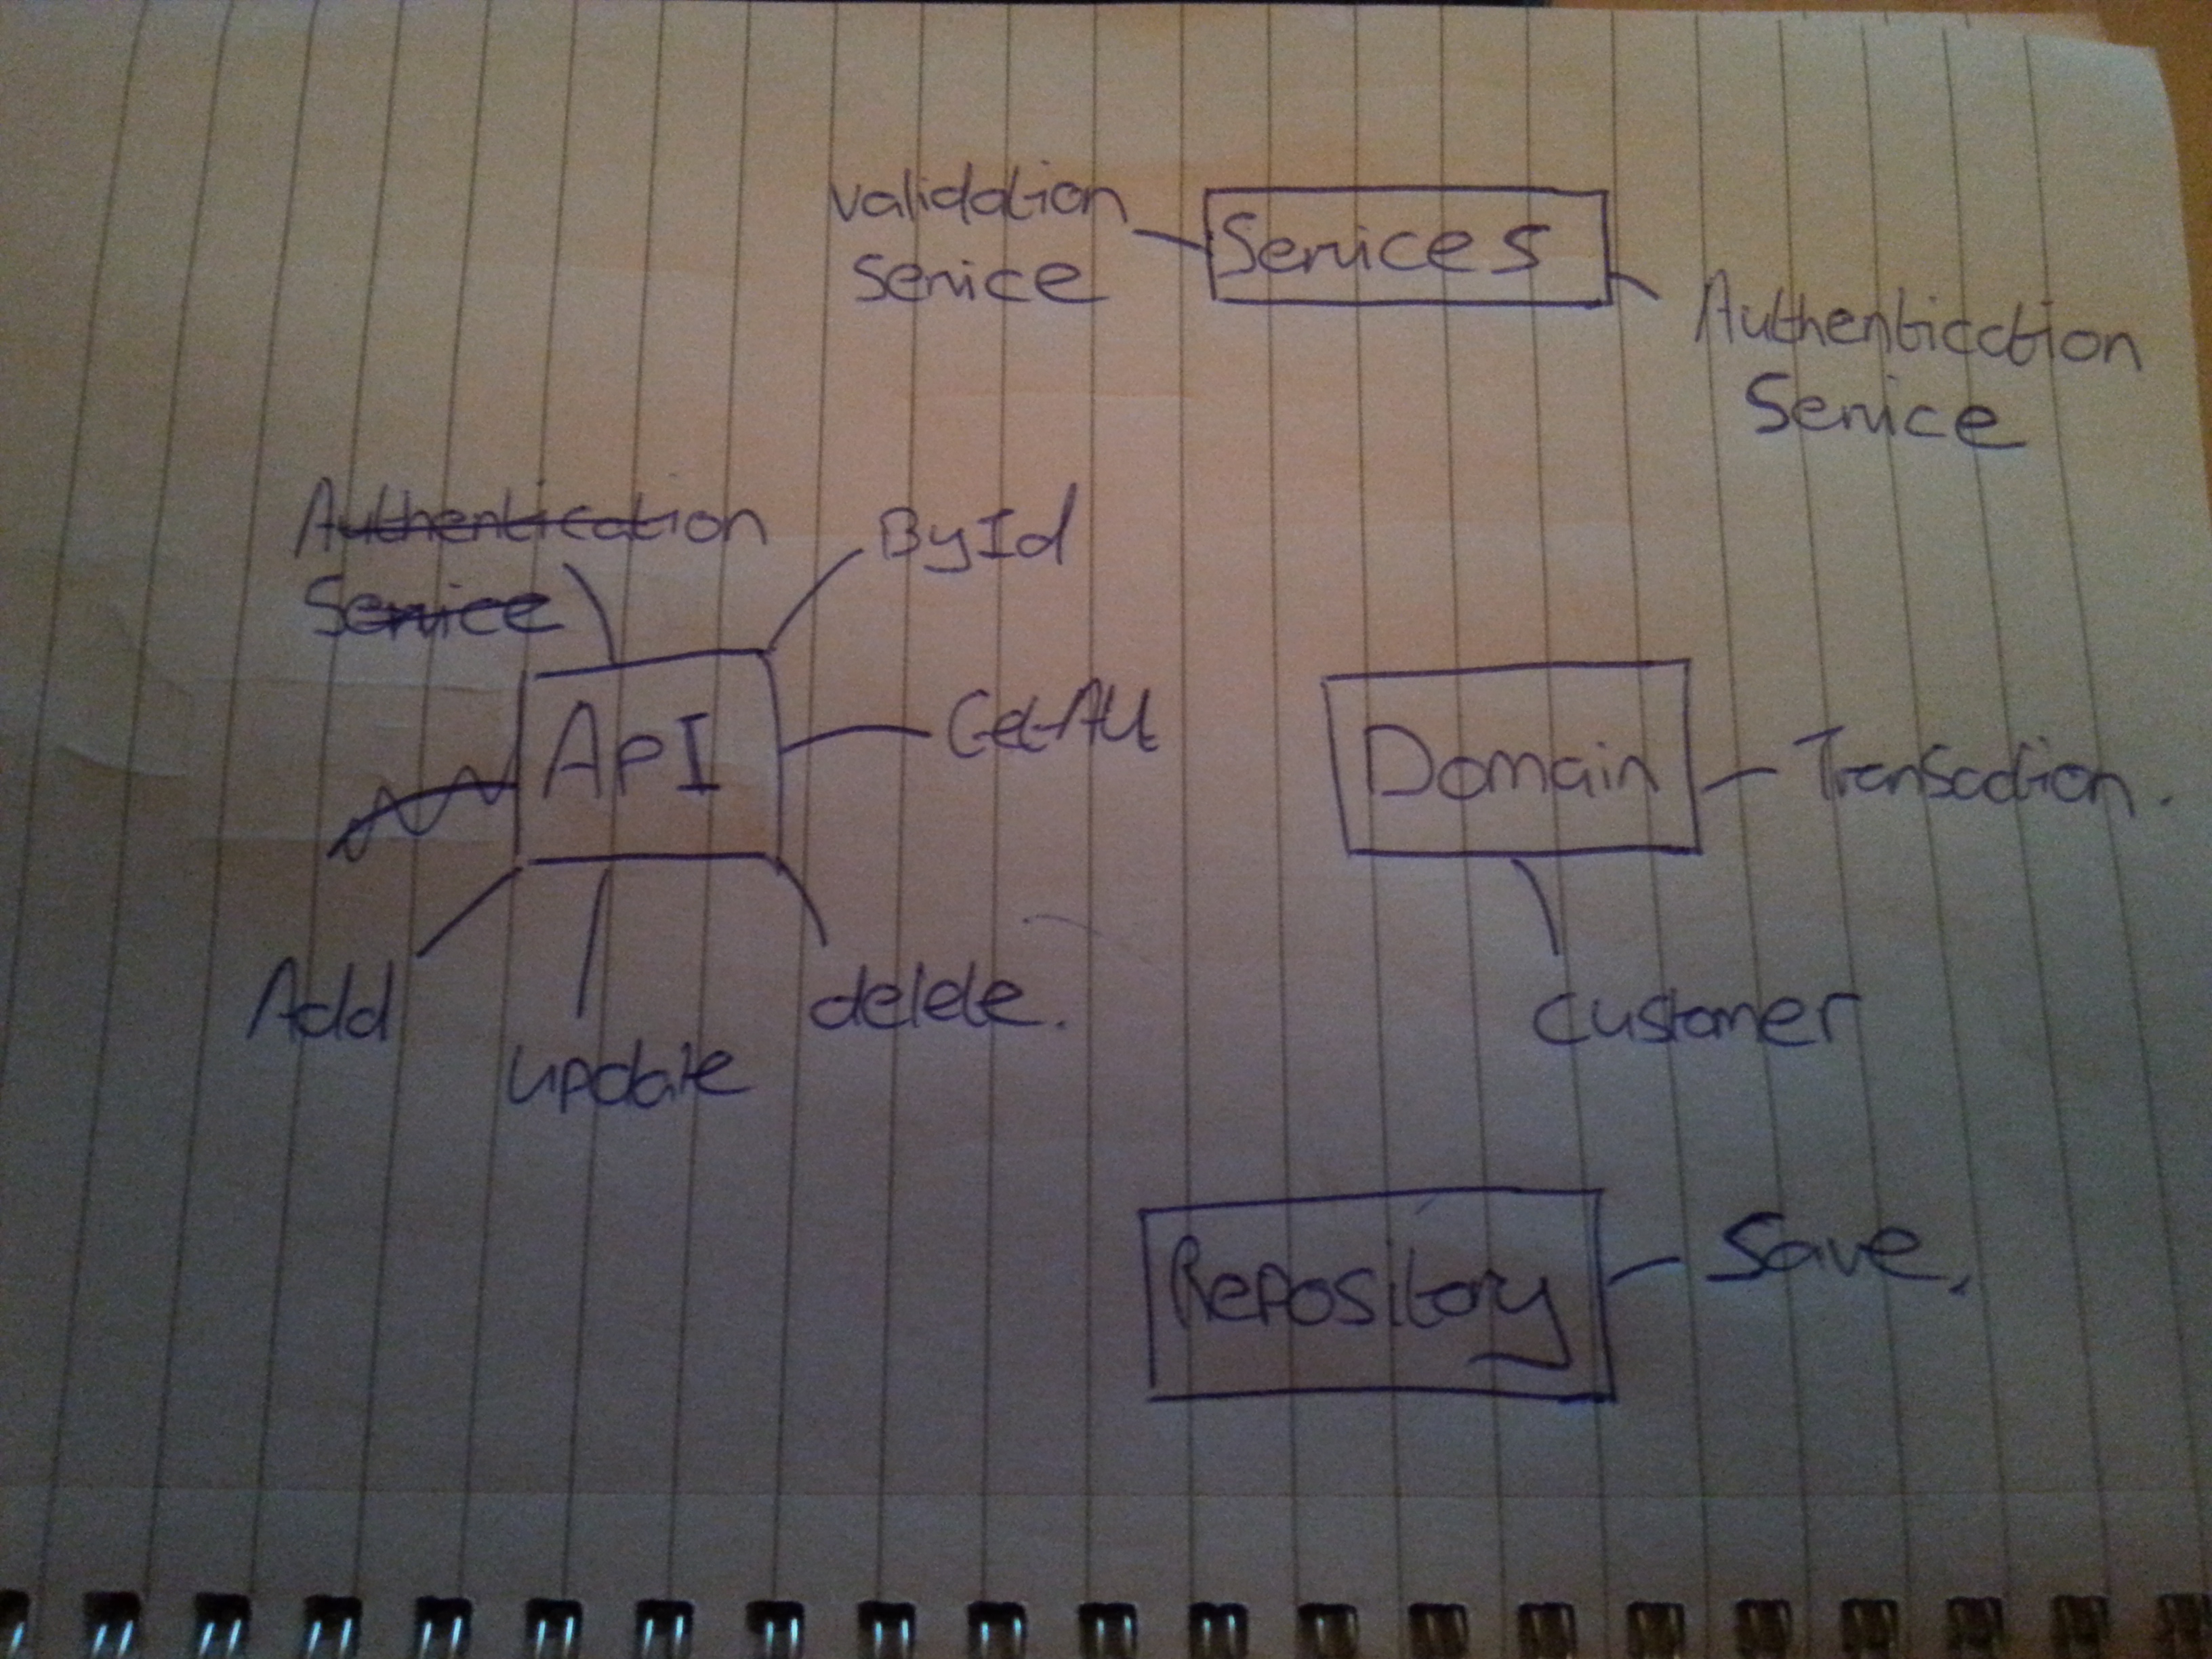 Validation
Service
Services
Authentication
Service
Authentication
Service
ById
GetAll
API
Add
update
delete.
Domain
Transaction.
customer
Repository
Save.